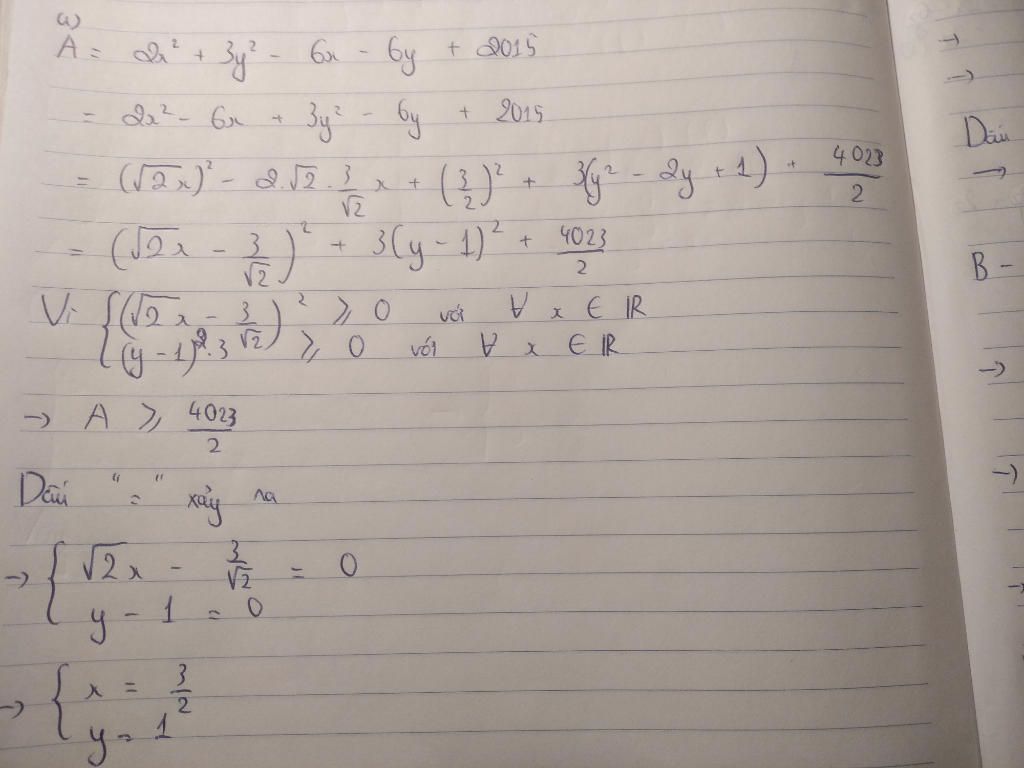 a)
A = 2x² + 3y² - 6x - 6y + 2015
= 2x² - 6x + 3y² - 6y + 2015
= (√2x)² - 2.√2.3/√2 x + (3/2)² + 3(y² - 2y + 1) + 4023/2
= (√2x - 3/√2)² + 3(y - 1)² + 4023/2
Vì { (√2x - 3/√2)² ⩾ 0 với ∀ x ∈ ℝ
(y - 1)².3 ⩾ 0 với ∀ x ∈ ℝ
→ A ⩾ 4023/2
Dấu "=" xảy ra
→ { √2x - 3/√2 = 0
y - 1 = 0
→ { x = 3/2
y = 1
→
→
Dấu
→
B -
→
→
→